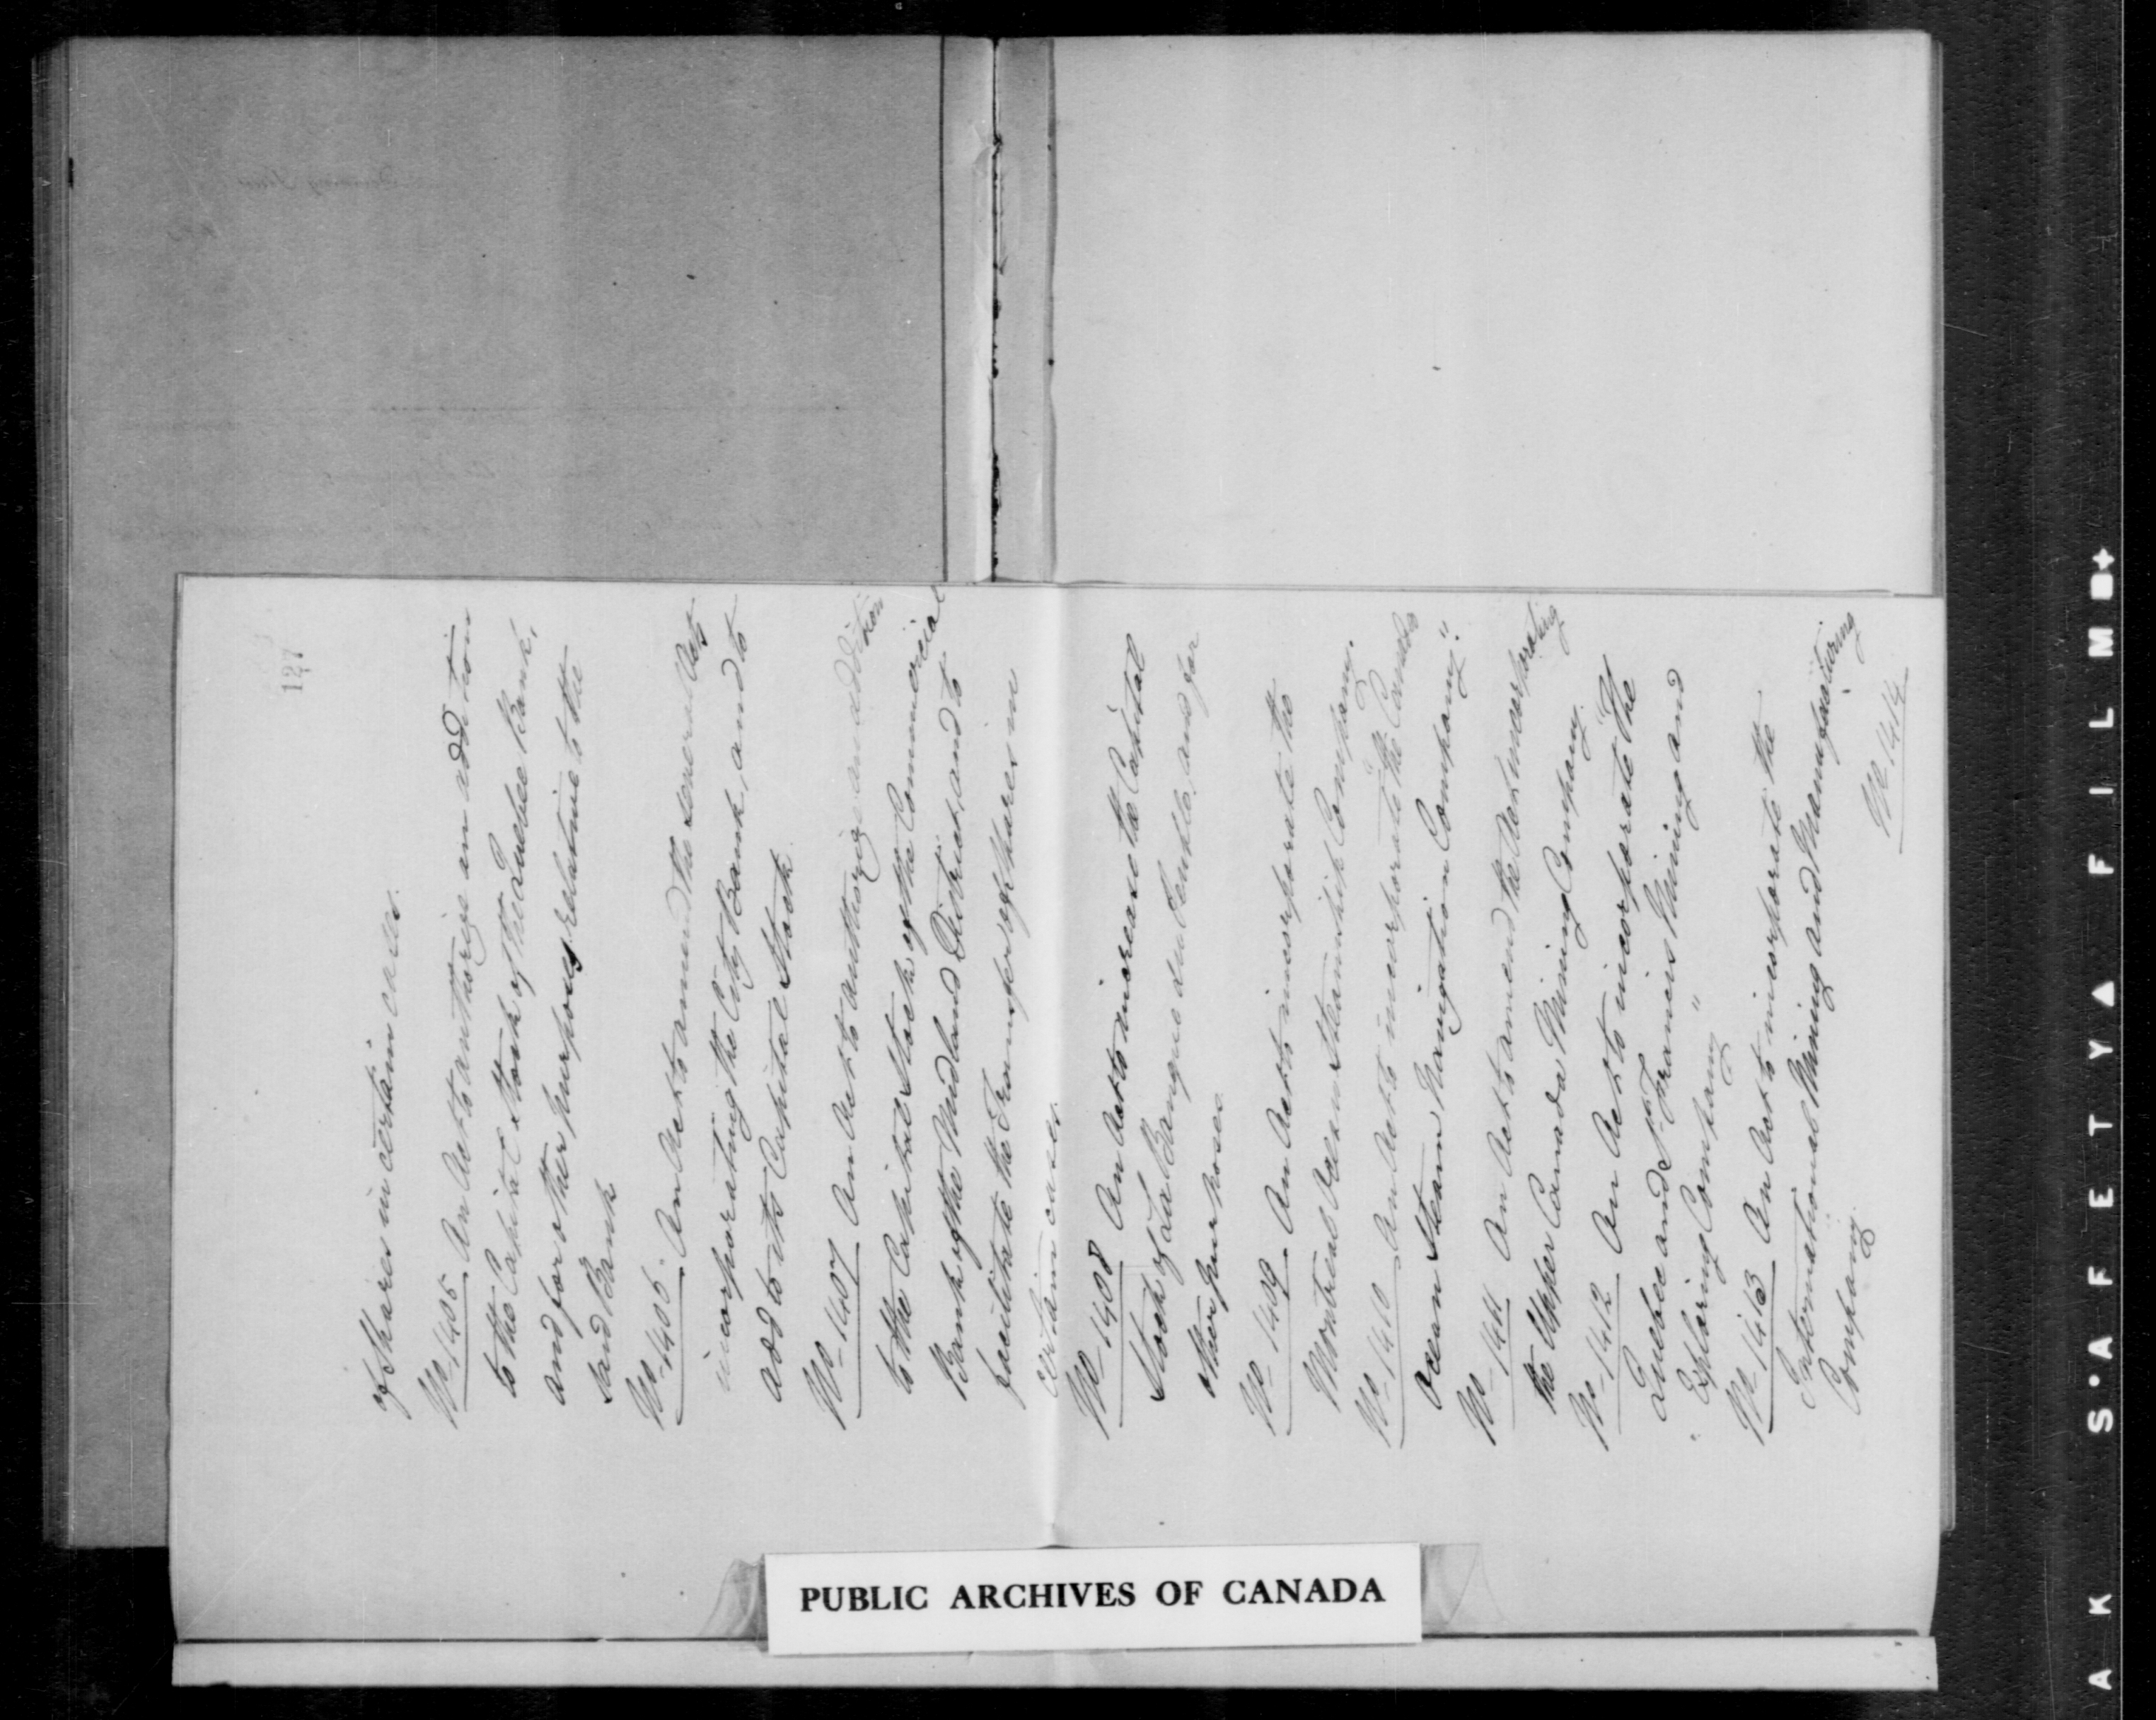 127
of Shares in certain cases.
No 1405 An Act to authorize an addition
to the Capital Stock of the Quebec Bank,
and for other purposes relative to the
said Bank
No 1406. An Act to amend the several Acts
incorporating the City Bank, and to
add to its Capital Stock.
No 1407 An Act to authorize an addition
to the Capital Stock of the Commercial
Bank of the Midland District, and to
facilitate the Transfer of Shares in
certain cases.
No 1408 An Act to increase the Capital
Stock of La Banque du Peuple, and for
other purposes
No 1409. An Act to incorporate the
Montreal Ocean Steamship Company.
No 1410 An Act to incorporate "The Canada
Ocean Steam Navigation Company."
No 1411 An Act to amend the Act incorporating
the Upper Canada Mining Company.
No 1412 An Act to incorporate "The
Quebec and St Francis Mining and
"Exploring Company"
No 1413 An Act to incorporate the
International Mining and Manufacturing
Company.
No 1414
PUBLIC ARCHIVES OF CANADA
AK S•AFETY▲ FILM ■+